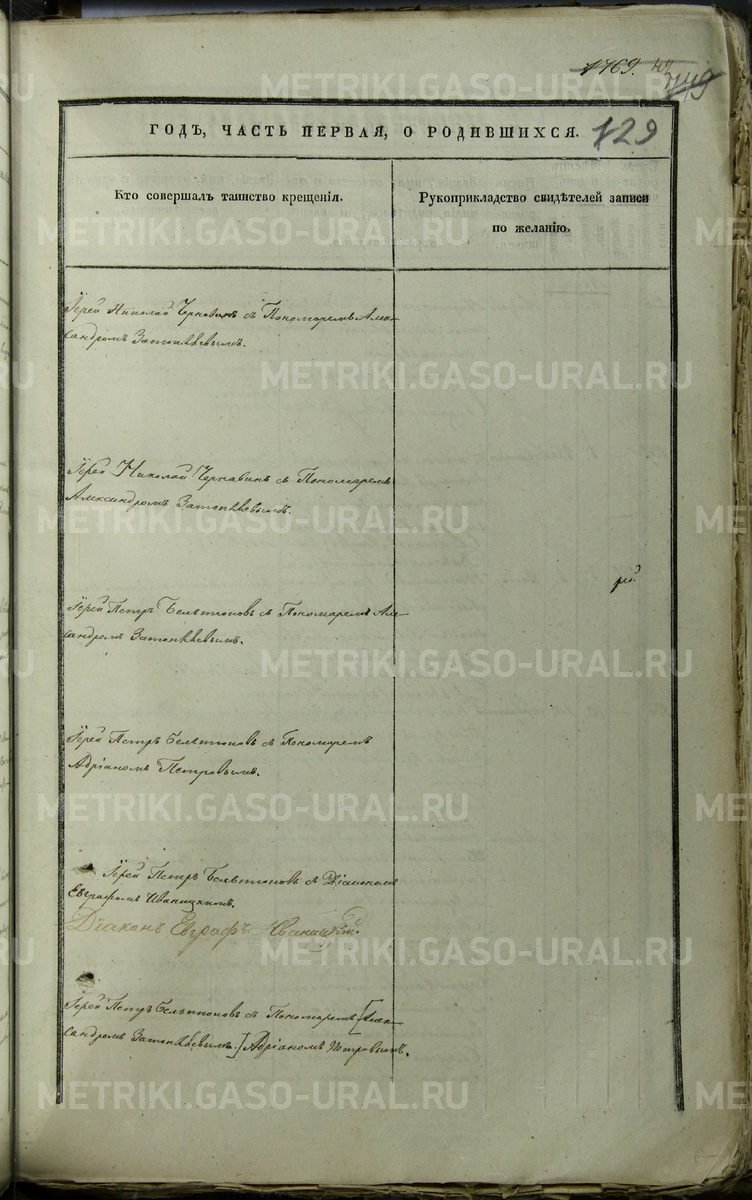 1769.
749
129
ГОДЪ, ЧАСТЬ ПЕРВАЯ, О РОДИВШИХСЯ.
Кто совершалъ таинство крещенія.
Рукоприкладство свидѣтелей записи
по желанію.
Іерей Николай Чернавинъ съ Пономаремъ Алек-
сандромъ Затопляевымъ.
Іерей Николай Чернавинъ съ Пономаремъ
Александромъ Затопляевымъ.
Іерей Петръ Бельтюковъ съ Пономаремъ Але-
ксандромъ Затопляевымъ.
Іерей Петръ Бельтюковъ съ Пономаремъ
Адріаномъ Петровымъ.
Іерей Петръ Бельтюковъ съ Діакономъ
Евграфомъ Иваницкимъ.
Діаконъ Евграфъ Иваницкій.
Іерей Петръ Бельтюковъ съ Пономаремъ [Алек-
сандромъ Затопляевымъ.] Адріаномъ Петровымъ.
METRIKI.GASO-URAL.RU